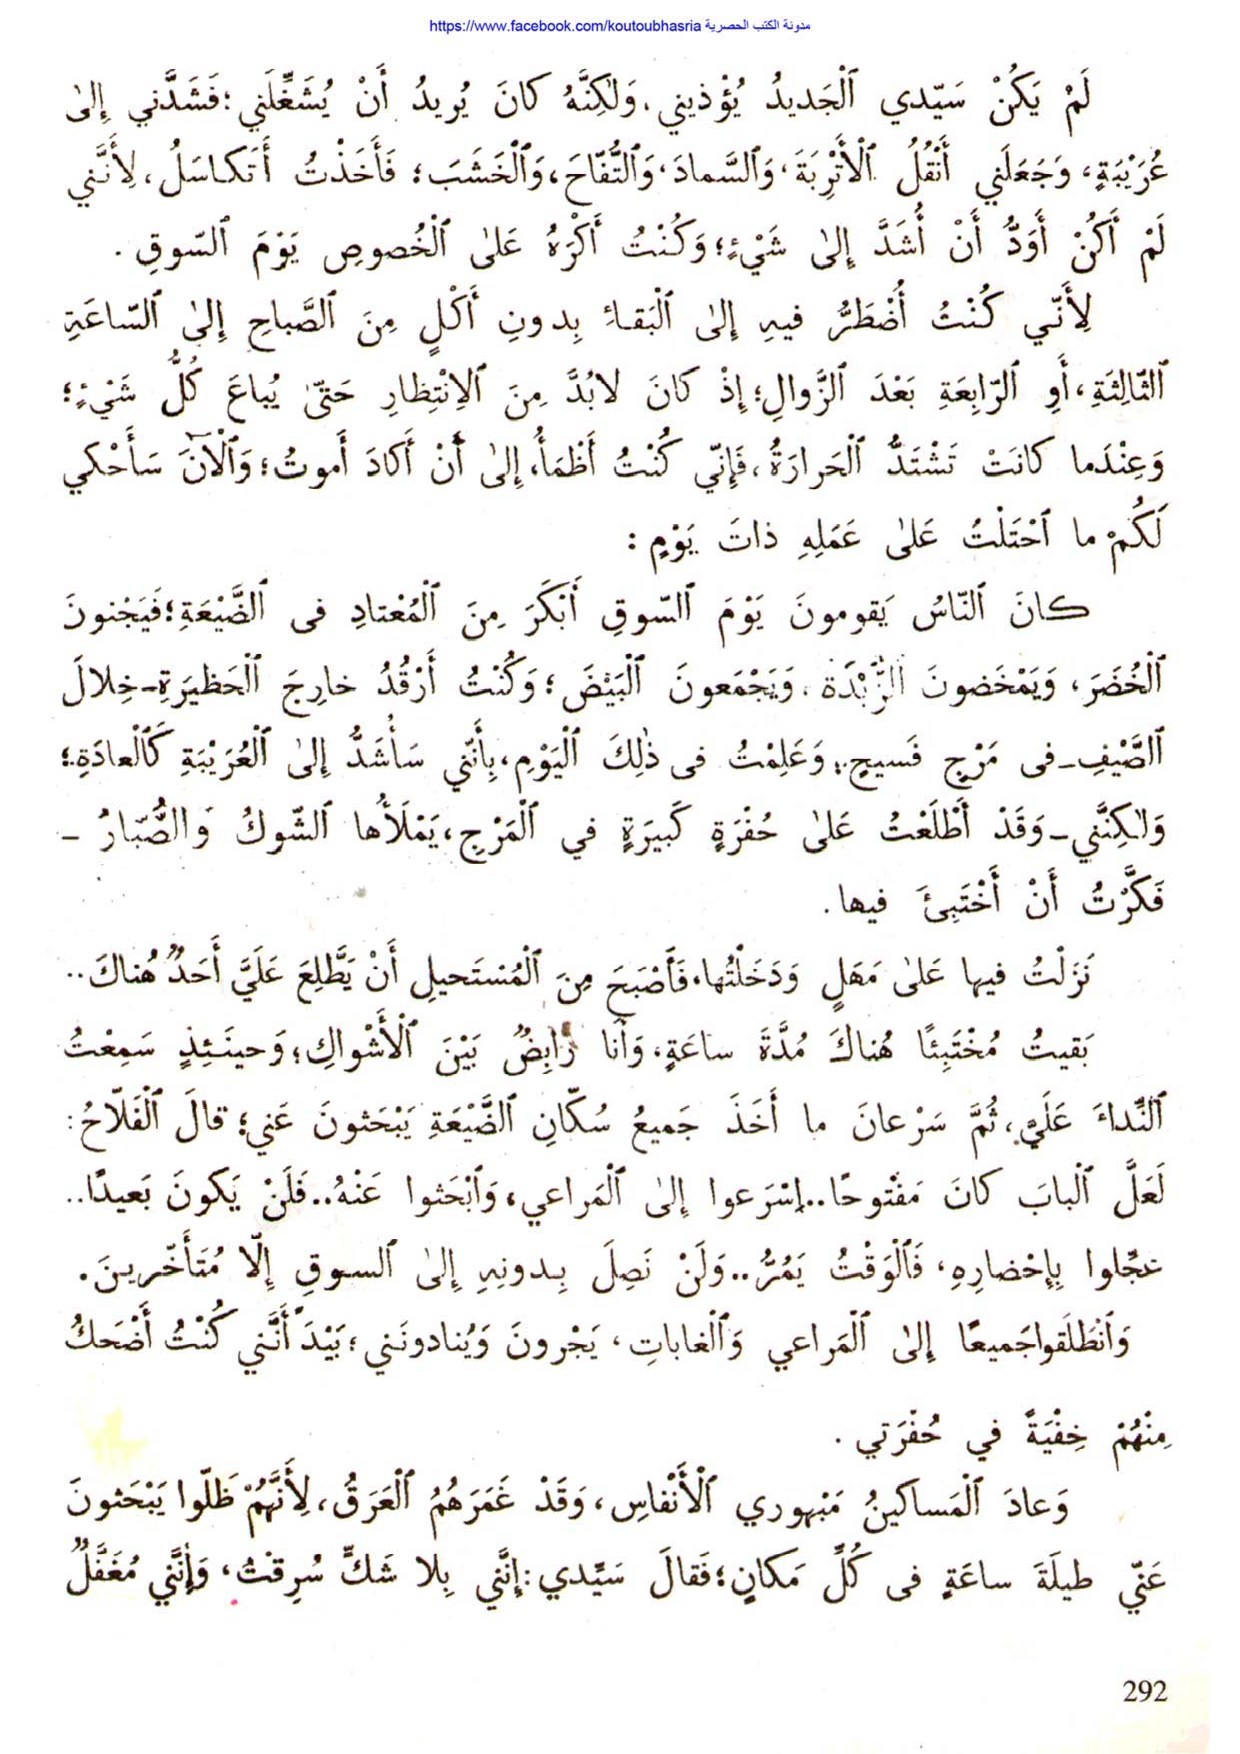 مدونة الكتب الحصرية https://www.facebook.com/koutoubhasria
لَمْ يَكُنْ سَيّدي ٱلْجَديدُ يُؤْذيني، وَلٰكِنَّهُ كانَ يُريدُ أَنْ يُشَغِّلَني؛ فَشَدَّني إِلىٰ
عُرَيْبَةٍ، وَجَعَلَني أَنْقُلُ ٱلْأَتْرِبَةَ، وَٱلسَّمادَ، وَٱلتُّفّاحَ، وَٱلْخَشَبَ؛ فَأَخَذْتُ أَتَكاسَلُ، لِأَنَّني
لَمْ أَكُنْ أَوَدُّ أَنْ أُشَدَّ إِلىٰ شَيْءٍ؛ وَكُنْتُ أَكْرَهُ عَلىٰ ٱلْخُصوصِ يَوْمَ ٱلسّوقِ .
لِأَنّي كُنْتُ أُضْطَرُّ فيهِ إِلىٰ ٱلْبَقاءِ بِدونِ أَكْلٍ مِنَ ٱلصَّباحِ إِلىٰ ٱلسّاعَةِ
ٱلثّالِثَةِ، أَوِ ٱلرّابِعَةِ بَعْدَ ٱلزَّوالِ؛ إِذْ كانَ لابُدَّ مِنَ ٱلِانْتِظارِ حَتّىٰ يُباعَ كُلُّ شَيْءٍ؛
وَعِنْدَما كانَتْ تَشْتَدُّ ٱلْحَرارَةُ، فَإِنّي كُنْتُ أَظْمَأُ، إِلىٰ أَنْ أَكادَ أَموتُ؛ وَٱلْآنَ سَأَحْكي
لَكُمْ ما ٱحْتَلْتُ عَلىٰ عَمَلِهِ ذاتَ يَوْمٍ :
كانَ ٱلنّاسُ يَقومونَ يَوْمَ ٱلسّوقِ أَبْكَرَ مِنَ ٱلْمُعْتادِ فى ٱلضَّيْعَةِ؛ فَيَجْنونَ
ٱلْخُضَرَ، وَيَمْخَضونَ ٱلزُّبْدَةَ، وَيَجْمَعونَ ٱلْبَيْضَ؛ وَكُنْتُ أَرْقُدُ خارِجَ ٱلْحَظيرَةِ - خِلالَ
ٱلصَّيْفِ - فى مَرْجٍ فَسيحٍ؛ وَعَلِمْتُ فى ذٰلِكَ ٱلْيَوْمِ، بِأَنّني سَأُشَدُّ إِلىٰ ٱلْعُرَيْبَةِ كَٱلْعادَةِ؛
وَلٰكِنَّني - وَقَدْ أَطْلَعْتُ عَلىٰ حُفْرَةٍ كَبيرَةٍ في ٱلْمَرْجِ، يَمْلَأُها ٱلشّوكُ وَالصُّبّارُ -
فَكَّرْتُ أَنْ أَخْتَبِئَ فيها.
نَزَلْتُ فيها عَلىٰ مَهَلٍ وَدَخَلْتُها، فَأَصْبَحَ مِنَ ٱلْمُسْتَحيلِ أَنْ يَطَّلِعَ عَلَيَّ أَحَدٌ هُناكَ..
بَقيتُ مُخْتَبِئًا هُناكَ مُدَّةَ ساعَةٍ، وَأَنا رابِضٌ بَيْنَ ٱلْأَشْواكِ؛ وَحينَئِذٍ سَمِعْتُ
ٱلنِّداءَ عَلَيَّ، ثُمَّ سَرْعانَ ما أَخَذَ جَميعُ سُكّانِ ٱلضَّيْعَةِ يَبْحَثونَ عَني؛ قالَ ٱلْفَلّاحُ:
لَعَلَّ ٱلْبابَ كانَ مَفْتوحًا.. إِسْرَعوا إِلىٰ ٱلْمَراعي، وَٱبْحَثوا عَنْهُ.. فَلَنْ يَكونَ بَعيدًا..
عَجِّلوا بِإِحْضارِهِ، فَٱلْوَقْتُ يَمُرُّ.. وَلَنْ نَصِلَ بِدونِهِ إِلىٰ ٱلسوقِ إِلّا مُتَأَخّرينَ.
وَٱنْطَلَقواجَميعًا إِلىٰ ٱلْمَراعي وَٱلْغاباتِ، يَجْرونَ وَيُنادونَني؛ بَيْدَ أَنَّني كُنْتُ أَضْحَكُ
مِنْهُمْ خِفْيَةً في حُفْرَتي .
وَعادَ ٱلْمَساكينُ مَبْهوري ٱلْأَنْفاسِ، وَقَدْ غَمَرَهُمُ ٱلْعَرَقُ، لِأَنَّهُمْ ظَلّوا يَبْحَثونَ
عَنّي طيلَةَ ساعَةٍ فى كُلِّ مَكانٍ؛ فَقالَ سَيِّدي: إِنَّني بِلا شَكٍّ سُرِقْتُ، وَإِنَّني مُغَفَّلٌ
292